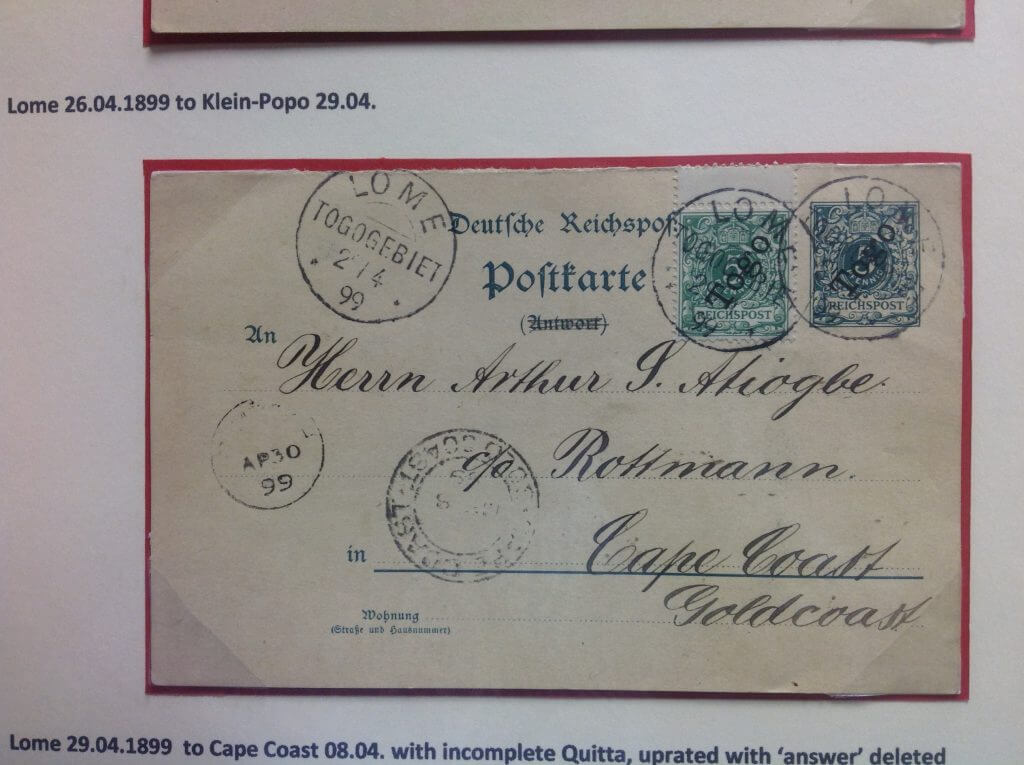 Lome 26.04.1899 to Klein-Popo 29.04.
LOME
TOGOGEBIET
4
99
Deutsche Reichspost
Postkarte
(Antwort)
LOME
Togo
REICHSPOST
LOME
Togo
REICHSPOST
An
Herrn Arthur S. Atiogbe.
c/o Rottmann.
AP 30
99
GOLD COAST
in
Cape Coast
Goldcoast
Wohnung
(Straße und Hausnummer)
Lome 29.04.1899 to Cape Coast 08.04. with incomplete Quitta, uprated with ‘answer’ deleted